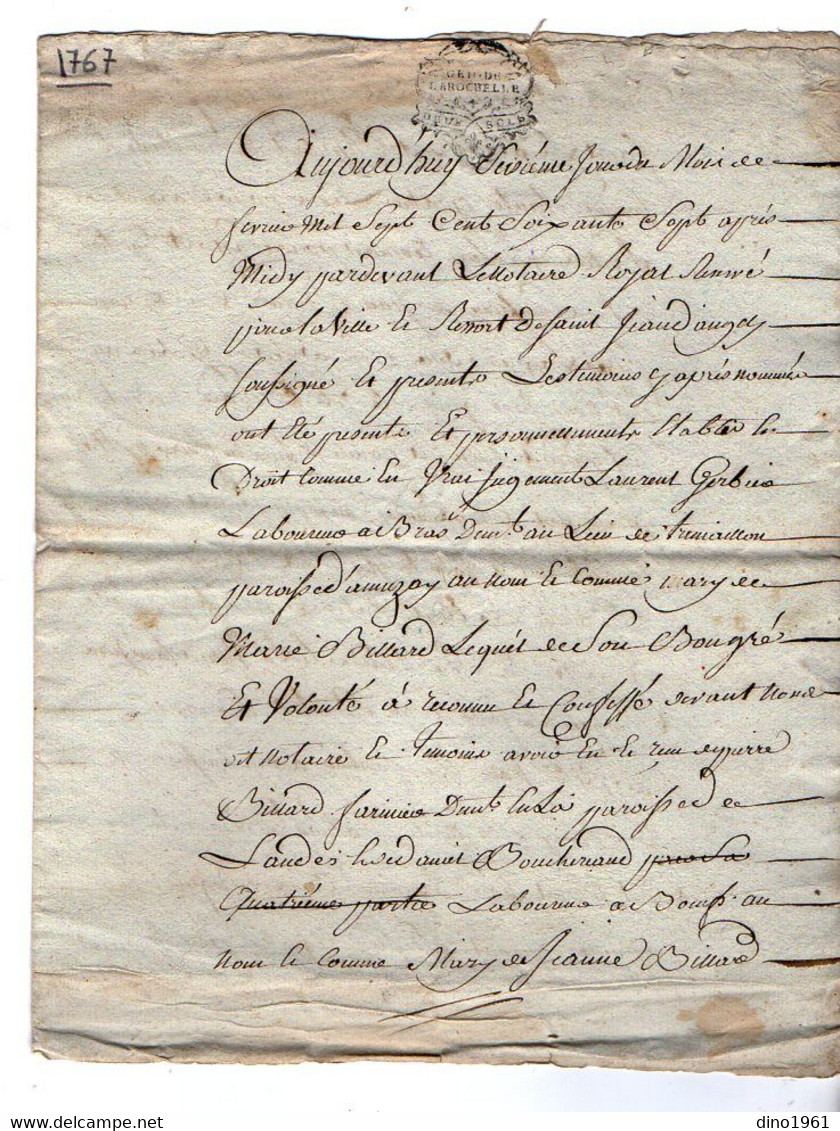 1767
GEN. DE
LAROCHELLE
DEUX SOLS
Aujourdhuy Seiziéme Jour du Mois de
fevrier Mil Sept Cent Soixante Sept apres
Midy pardevant Le Notaire Royal Reservé
pour la Ville Et Ressort de Saint Jean dangely
soussigné Et presents Les temoins cy aprés nommés
ont été presents Et personnellements Etablis En
Droit Comme En Vrai Jugement Laurent Gerbier
Laboureur a Bras Demt. au Lieu de
paroisse d'annezay au nom Et Comme mary de
Marie Billard Lequel de Son Bon gré
Et Volonté à reconnu Et Confessé devant nous
dit notaire Et temoins avoir Eu Et reçu de pierre
Billard farinier Demt. En La paroisse de
Landes Et de daniel Boucheriaud pour La
Quatriéme partie Laboureur a Bœufs au
nom Et Comme Mary de Jeanne Billard
dino1961